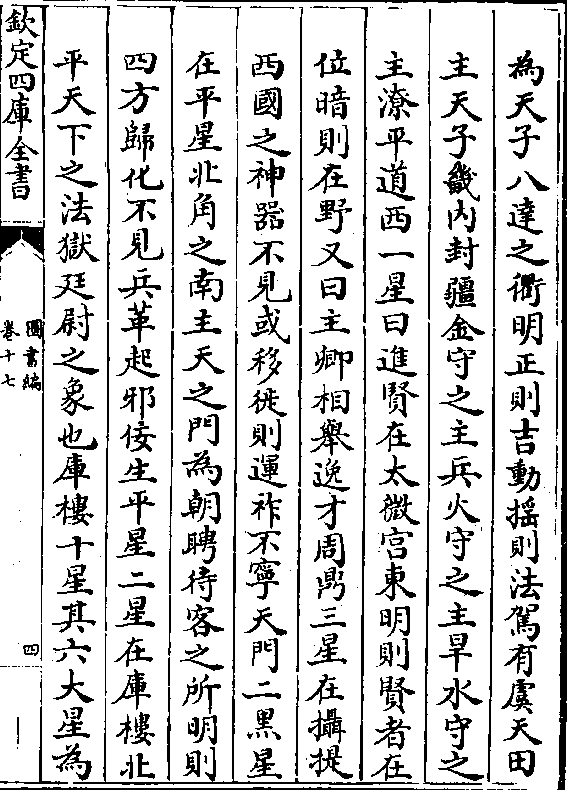 為天子八達之衢明正則吉動揺則法駕有虞天田
主天子畿內封疆金守之主兵火守之主旱水守之
主潦平道西一星曰進賢在太微宫東明則賢者在
位暗則在野又曰主卿相舉逸才周鼎三星在攝提
西國之神器不見或移徙則運祚不寧天門二黑星
在平星北角之南主天之門為朝聘待客之所明則
四方歸化不見兵革起邪佞生平星二星在庫樓北
平天下之法獄廷尉之象也庫樓十星其六大星為
欽定四庫全書
圖書編
卷十七
四